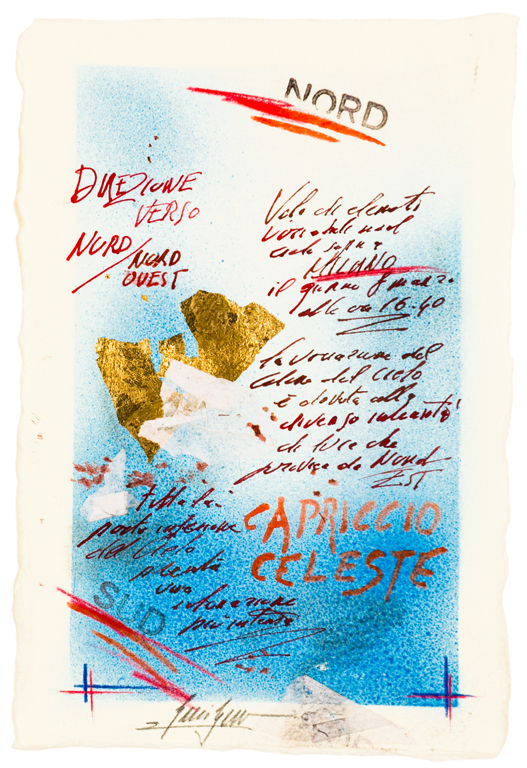 NORD
DIREZIONE
VERSO
NORD/NORD
OUEST
Volo di elementi
variabili nel
cielo sopra
MILANO
il giorno 8 marzo
alle ore 16.40
la variazione del
colore del cielo
è dovuta alla
diversa intensità
di luce che
proviene da Nord
Est
tutta la
parte inferiore
del cielo
presenta
una
colorazione
più intensa
CAPRICCIO
CELESTE
SUD